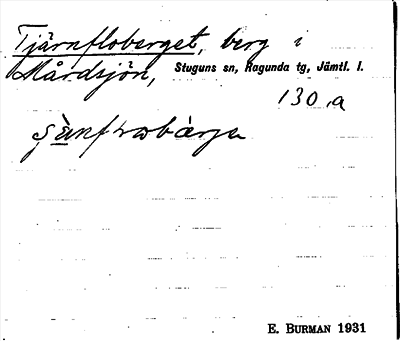 Tjärnfloberget, berg i
Mårdsjön, Stuguns sn, Ragunda tg, Jämtl. l.
130, a
E. BURMAN 1931